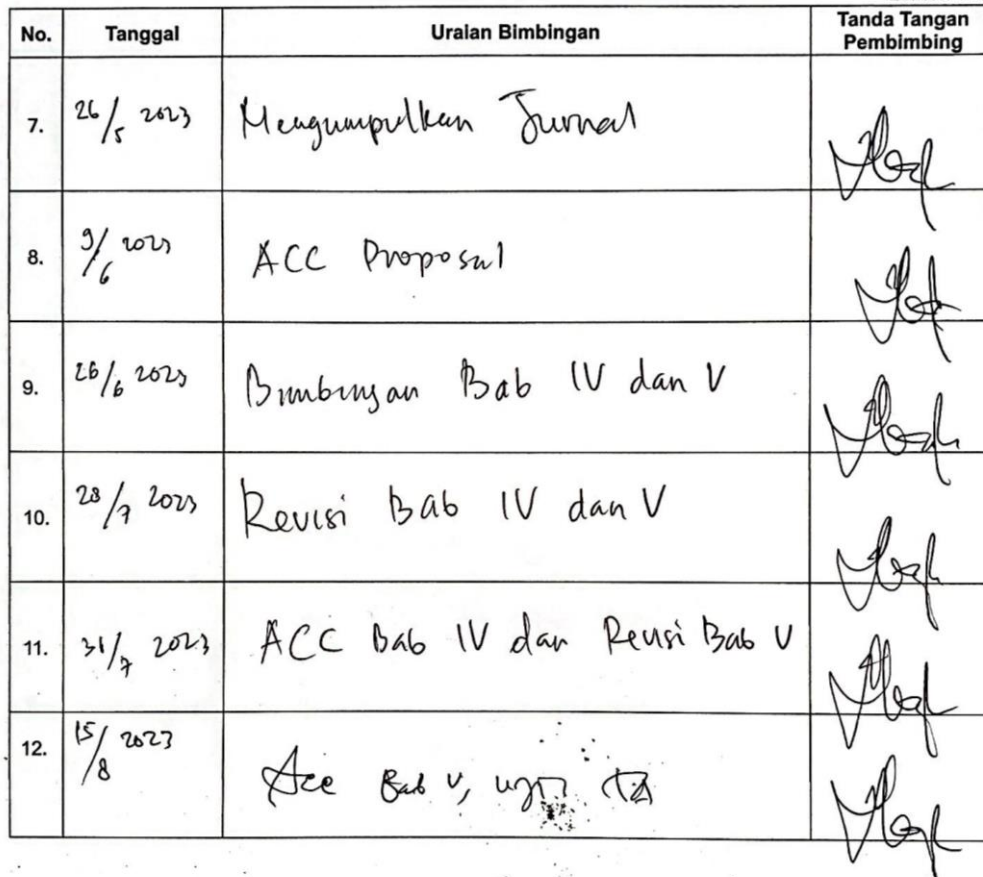 No. Tanggal Uraian Bimbingan Tanda Tangan
Pembimbing
7. 26/5 2023 Mengumpulkan Jurnal
8. 9/6 2023 ACC Proposal
9. 26/6 2023 Bimbingan Bab IV dan V
10. 28/7 2023 Revisi Bab IV dan V
11. 31/7 2023 ACC Bab IV dan Revisi Bab V
12. 15/8 2023 Acc Bab V, ujian TA